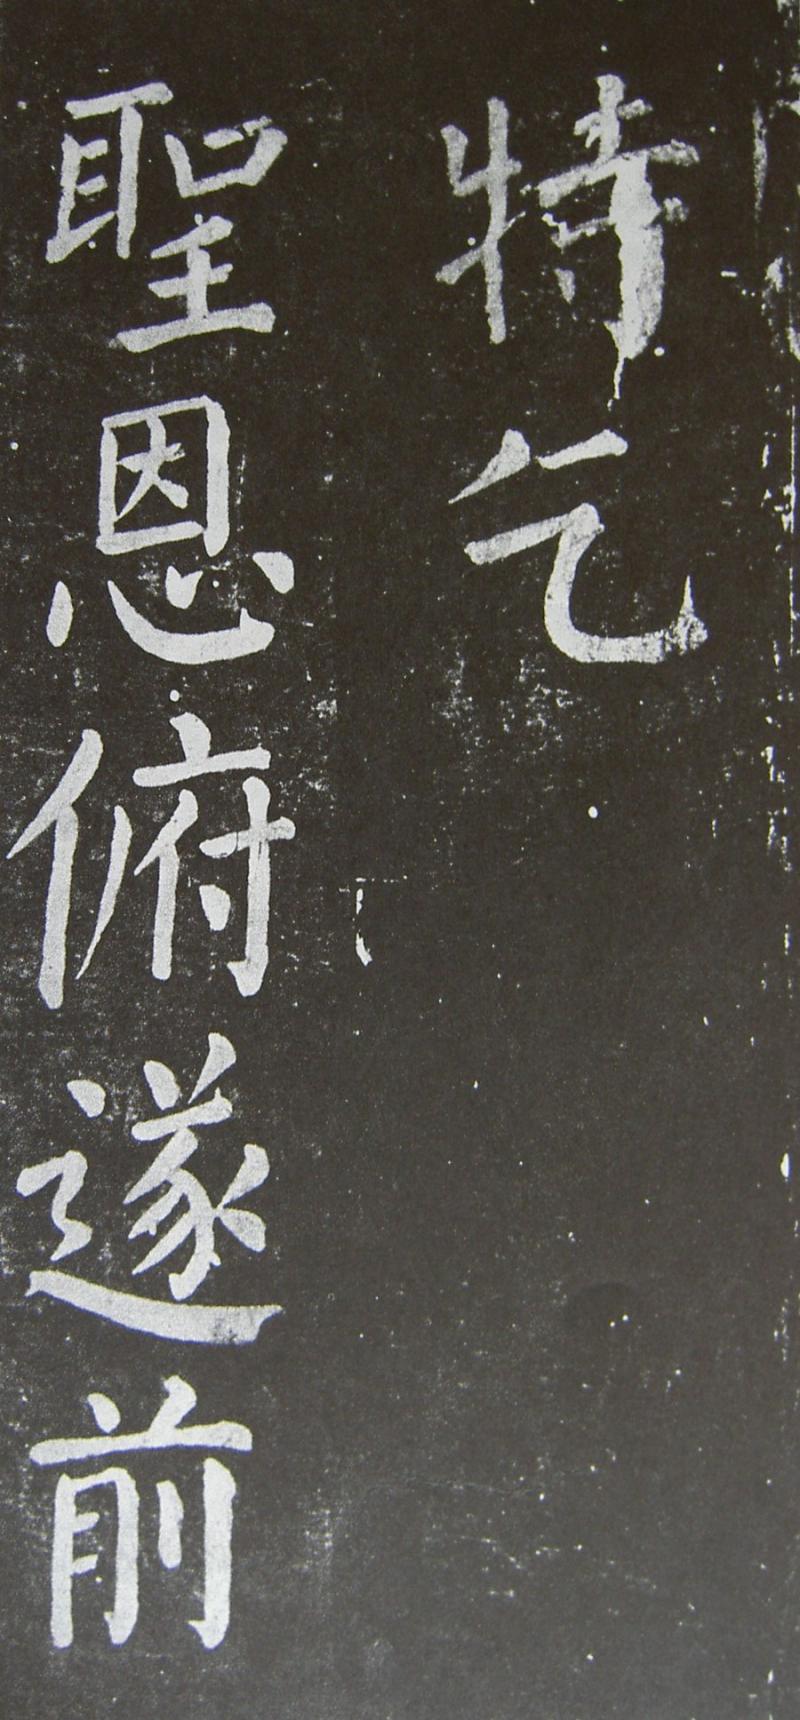 特乞
聖恩俯遂前